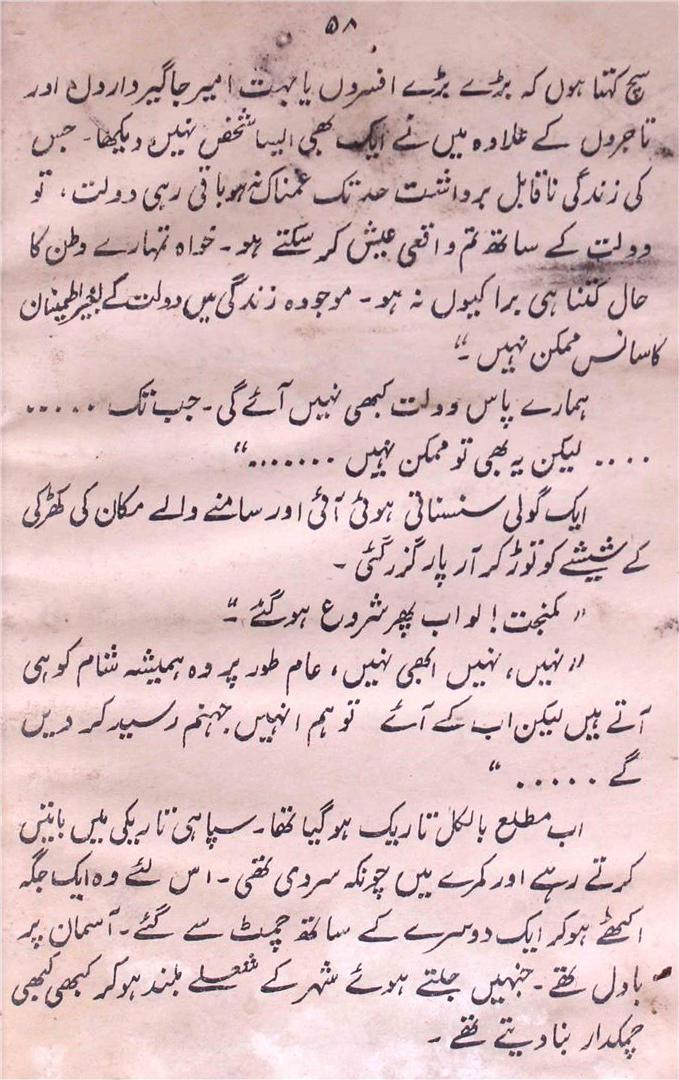 ۵۸
سچ کہتا ہوں کہ بڑے بڑے افسروں یا بہت امیر جاگیرداروں اور
تاجروں کے علاوہ میں نے ایک بھی ایسا شخص نہیں دیکھا۔ جس
کی زندگی ناقابل برداشت حد تک غمناک نہ ہو باقی رہی دولت، تو
دولت کے ساتھ تم واقعی عیش کر سکتے ہو۔ خواہ تمہارے وطن کا
حال کتنا ہی برا کیوں نہ ہو۔ موجودہ زندگی میں دولت کے بغیر اطمینان
کا سانس ممکن نہیں۔“
ہمارے پاس دولت کبھی نہیں آئے گی۔ جب تک .....
.... لیکن یہ بھی تو ممکن نہیں .......“
ایک گولی سنسناتی ہوئی آئی اور سامنے والے مکان کی کھڑکی
کے شیشے کو توڑ کر آر پار گزر گئی۔
”کمبخت! لو اب پھر شروع ہو گئے۔“
”نہیں، نہیں ابھی نہیں، عام طور پر وہ ہمیشہ شام کو ہی
آتے ہیں لیکن اب کے آئے تو ہم انہیں جہنم رسید کر دیں
گے .....“
اب مطلع بالکل تاریک ہو گیا تھا۔ سپاہی تاریکی میں باتیں
کرتے رہے اور کمرے میں چونکہ سردی تھی۔ اس لئے وہ ایک جگہ
اکٹھے ہو کر ایک دوسرے کے ساتھ چمٹ سے گئے۔ آسمان پر
بادل تھے۔ جنہیں جلتے ہوئے شہر کے شعلے بلند ہو کر کبھی کبھی
چمکدار بنا دیتے تھے۔